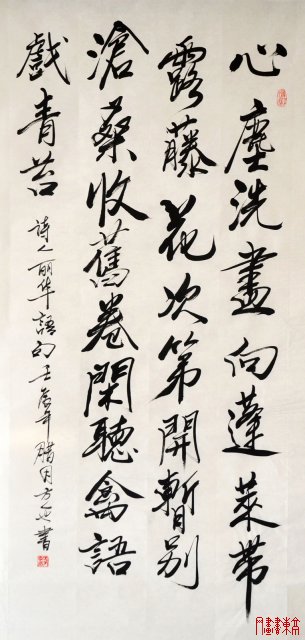 心塵洗盡向蓬萊帶
露藤花次第開暫別
滄桑收舊卷閑聽禽語
戲青苔
詩人丽华語句壬辰年腊月方也書